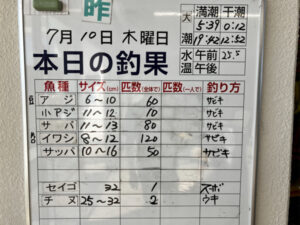 昨 大潮 満潮 干潮
5:39 0:12
7月10日 木曜日 19:42 12:52
本日の釣果 水温 午前 25.5
午後
魚種 サイズ(cm) 匹数(全体で) 匹数(一人で) 釣り方
アジ 6~10 60 サビキ
小アジ 11~12 10 サビキ
サバ 11~13 80 サビキ
イワシ 8~12 120 サビキ
サッパ 10~16 50 サビキ
セイゴ 32 1 ズボ
チヌ 25~32 2 ウキ